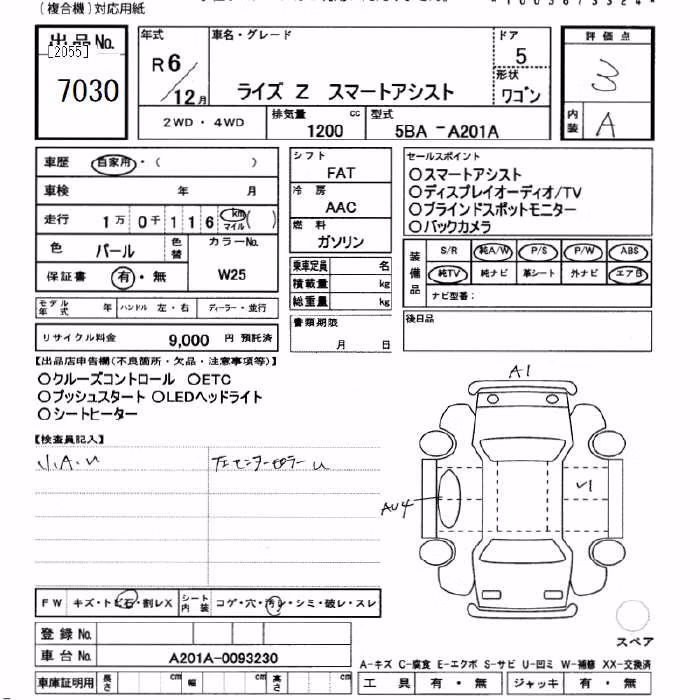 (複合機)対応用紙
*1005673324*
出品No.
[2055]
7030
年式
R6
12月
車名・グレード
ライズ Z スマートアシスト
ドア
5
形状
ワゴン
評価点
3
内装
A
2WD・4WD
排気量
1200
cc
型式
5BA -A201A
車歴
自家用・( )
車検
年 月
走行
1万0千116
km
マイル
( )
色
パール
色替
カラーNo.
W25
保証書
有・無
モデル年式
年
ハンドル 左・右
ディーラー・並行
リサイクル料金
9,000 円 預託済
シフト
FAT
冷房
AAC
燃料
ガソリン
乗車定員 名
積載量 kg
総重量 kg
書類期限
月 日
セールスポイント
○スマートアシスト
○ディスプレイオーディオ/TV
○ブラインドスポットモニター
○バックカメラ
装備品
S/R 純A/W P/S P/W ABS
純TV 純ナビ 革シート 外ナビ エア日
ナビ型番:
後日品
【出品店申告欄(不良箇所・欠品・注意事項等)】
○クルーズコントロール ○ETC
○プッシュスタート ○LEDヘッドライト
○シートヒーター
【検査員記入】
左センターピラー U
A1
AU4
FW キズ・トビ石・割レX
シート内装 コゲ・穴・汚レ・シミ・破レ・スレ
登録No.
車台No.
A201A-0093230
車庫証明用 長さ cm 幅 cm 高さ cm
スペア
A-キズ C-腐食 E-エクボ S-サビ U-凹ミ W-補修 XX-交換済
工具 有・無 ジャッキ 有・無